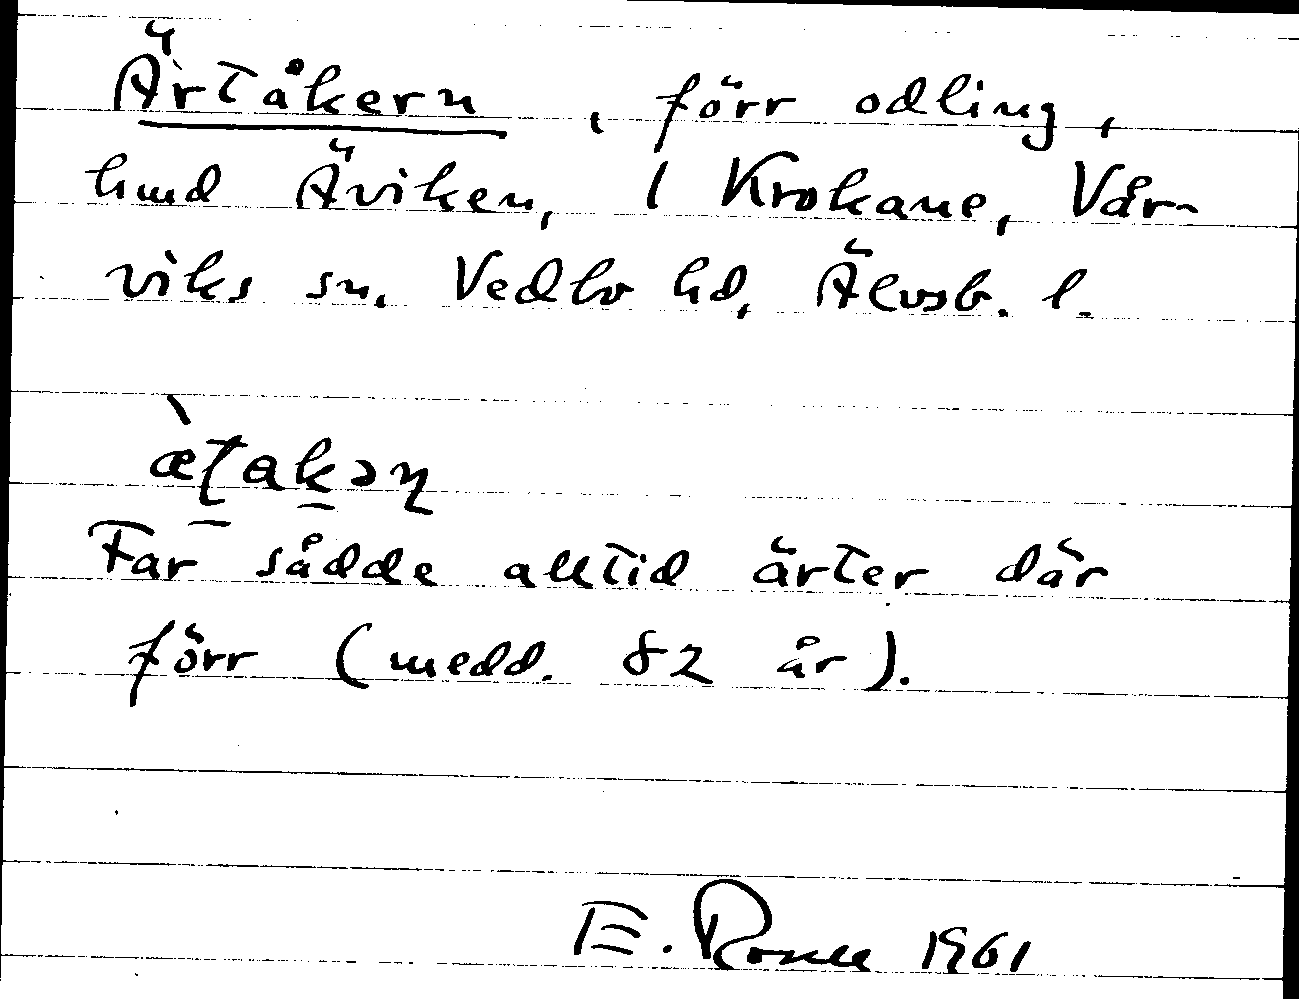 Ärtåkern, förr odling,
hmd Äviken, 1 Krokane, Vår-
viks sn. Vedbo hd, Älvsb. l.
Far sådde alltid ärter där
förr (medd. 82 år).
E. 1961